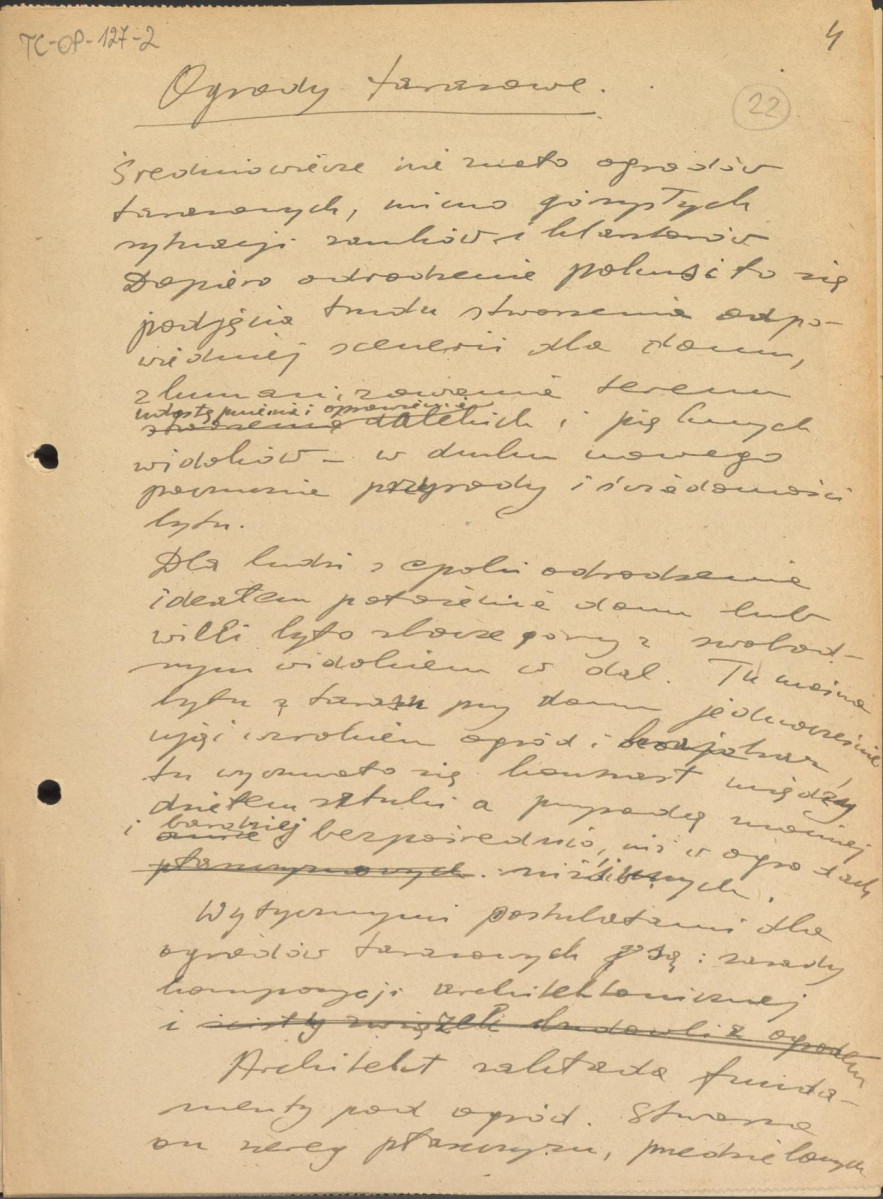 TC-OP-127-2
4
Ogrody tarasowe.
22
Średniowiecze nie znało ogrodów
tarasowych, mimo górzystych
sytuacji zamków i klasztorów
Dopiero odrodzenie pokusiło się
podjęcia trudu stworzenia odpo-
wiedniej scenerii dla domu,
zhumanizowania terenu
udostępnienia i oprawienia
stworzenia dalekich i pięknych
widoków – w duchu nowego
poczucia przyrody i świadomości
bytu.
Dla ludzi z epoki odrodzenia
ideałem położenia domu lub
willi było zbocze góry z swobod-
nym widokiem w dal. Tu można
było z tarasu przy domu jednocześnie
ująć wzrokiem ogród i krajobraz,
tu wyczuwało się kontrast między
dziełem sztuki a przyrodą mocniej
i bardziej bezpośrednio, niż w ogrodach
płaszczyznowych. nizinnych.
Wytycznymi postulatami dla
ogrodów tarasowych są: zasady
kompozycji architektonicznej
i ścisły związek budowli z ogrodem
Architekt zakłada funda-
menty pod ogród. Stwarza
on szereg płaszczyzn, przedzielonych